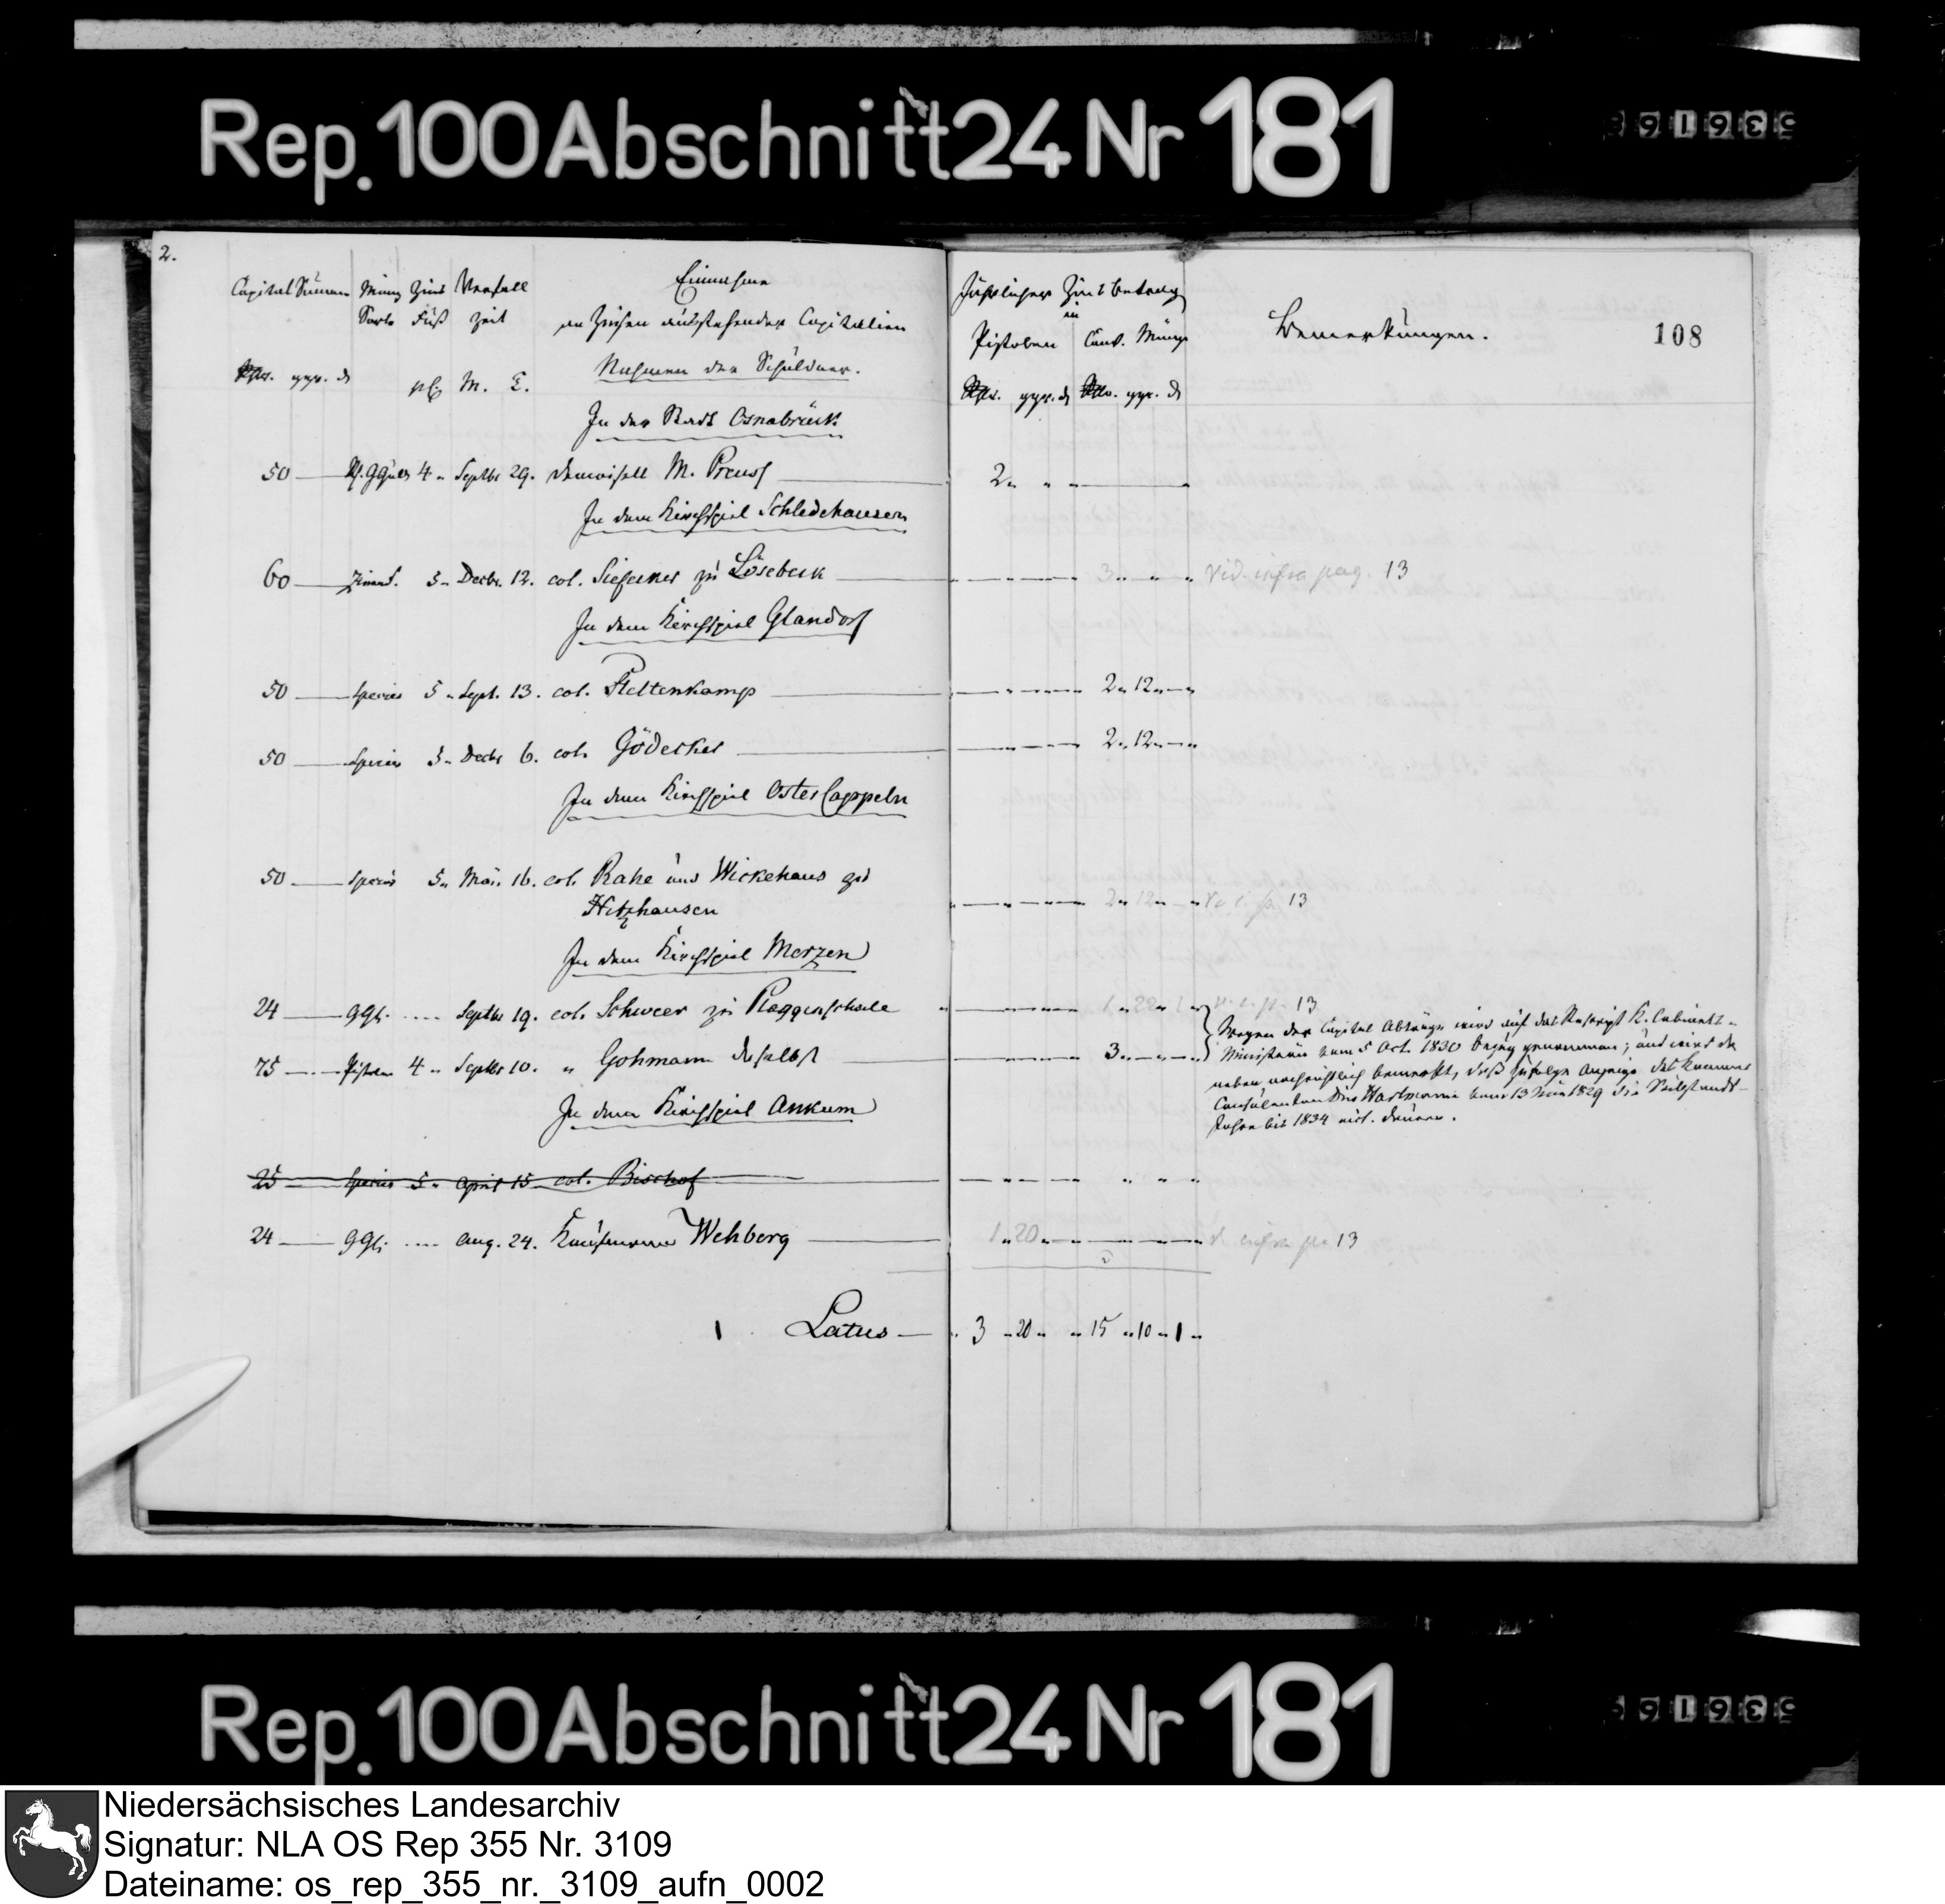 Rep. 100 Abschnitt 24 Nr 181
2.
Capital Summen Münz Zins Verfall Einnahme Jährlicher Zins betrag
Sorte Fuß zeit an Zinsen ausstehender Capitalien in
Pistolen Conv. Münze Bemerkungen. 108
Rthlr. ggr. d M. T. Nahmen der Schuldner.
Rthlr. ggr. d Rthlr. ggr. d
In der Stadt Osnabrück
50 4 " Septbr 29. Demoisell M. Preuss 2 " " "
In dem Kirchspiel Schledehausen
60 5 " Decbr. 12. col. zu Lösebeck 3 " " " Vid. infra pag. 13
In dem Kirchspiel Glandorf
50 Species 5 " Sept. 13. col. 2 " 12 "
50 Species 5 " Decbr 6. col. Gödecker 2 " 12 "
In dem Kirchspiel Ostercappeln
50 Species 5 " Mai. 16. col. Rahe und Wickehaus zu
Hitzhausen 2 " 12 " 13
In dem Kirchspiel Merzen
24 gGl. .... Septbr 19. col. Schweer zu Plaggenschale 1 " 22 " 1 " 13
75 Pistolen 4 " Septbr 10. " Gohmann daselbst 3 "
Wegen der Capital Abträge wird auf das Rescript K. Cabinets-
Ministerii vom 5 Oct. 1830 bezug genommen; und wird da
neben nachrichtlich bemerkt, daß zufolge Anzeige des
Consulenten Dris Hartmann vom 13 1829 die Stillstands-
Jahre bis 1834 dauern.
In dem Kirchspiel Ankum
25 Species 5 " April 15 col. Bischof
24 gGl. .... Aug. 24. Kaufmann Wehberg 1 " 20 " infra p. 13
Latus 3 " 20 " " 15 " 10 " 1 "
Rep. 100 Abschnitt 24 Nr 181
Niedersächsisches Landesarchiv
Signatur: NLA OS Rep 355 Nr. 3109
Dateiname: os_rep_355_nr._3109_aufn_0002